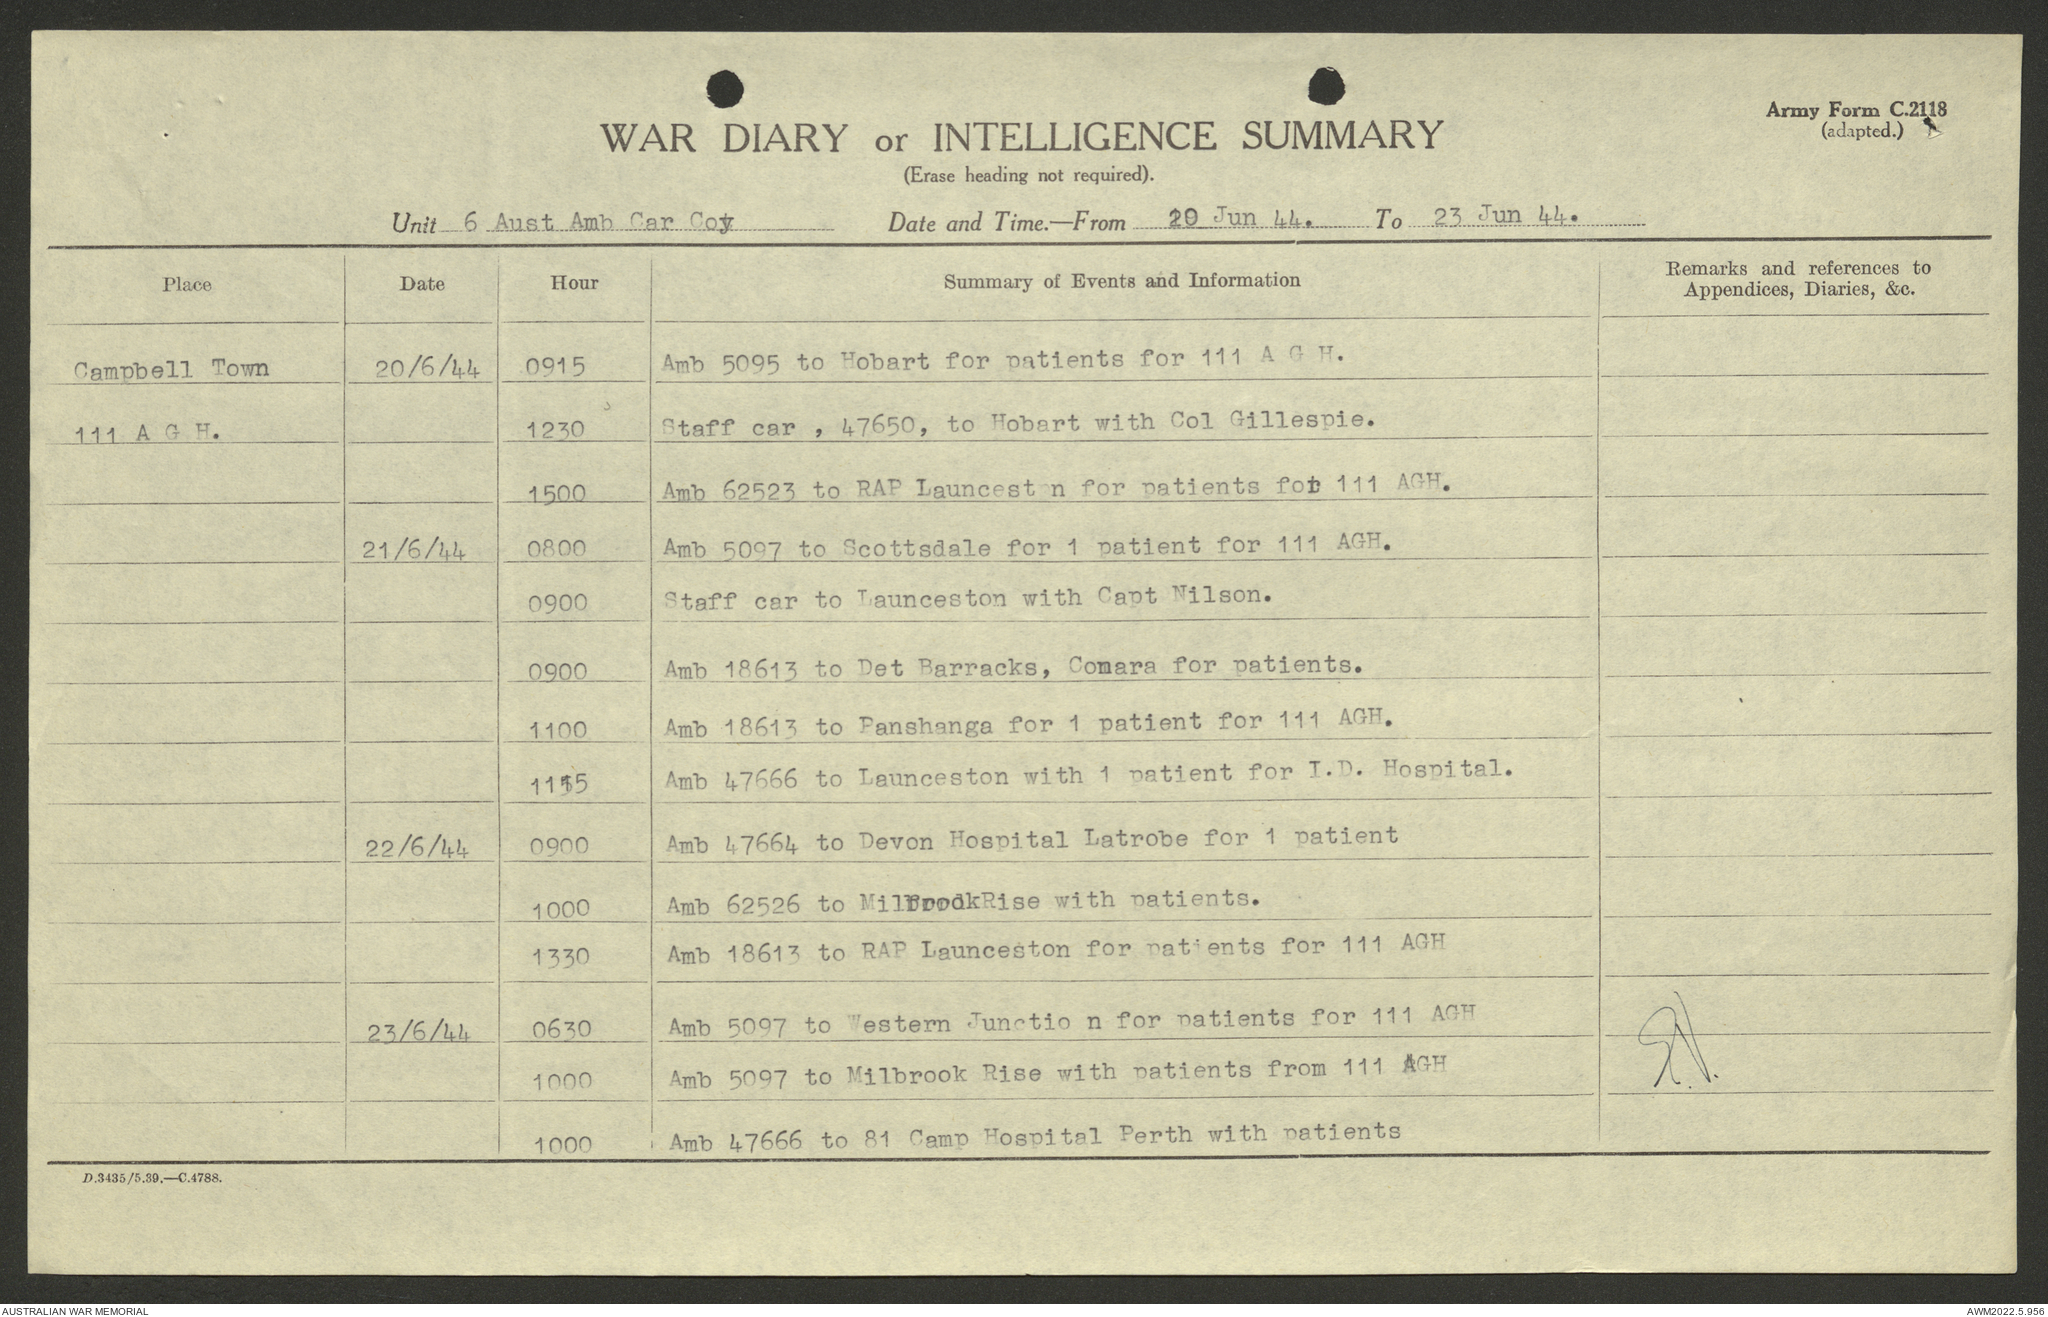 Army Form C.2118
(adapted.)
WAR DIARY or INTELLIGENCE SUMMARY
(Erase heading not required).
Unit 6 Aust Amb Car Coy Date and Time.—From 20 Jun 44. To 23 Jun 44.
Place Date Hour Summary of Events and Information Remarks and references to
Appendices, Diaries, &c.
Campbell Town 20/6/44 0915 Amb 5095 to Hobart for patients for 111 A G H.
111 A G H. 1230 Staff car , 47650, to Hobart with Col Gillespie.
1500 Amb 62523 to RAP Launcest n for patients for 111 AGH.
21/6/44 0800 Amb 5097 to Scottsdale for 1 patient for 111 AGH.
0900 Staff car to Launceston with Capt Nilson.
0900 Amb 18613 to Det Barracks, Conara for patients.
1100 Amb 18613 to Panshanga for 1 patient for 111 AGH.
1115 Amb 47666 to Launceston with 1 patient for I.D. Hospital.
22/6/44 0900 Amb 47664 to Devon Hospital Latrobe for 1 patient
1000 Amb 62526 to MilbrookRise with patients.
1330 Amb 18613 to RAP Launceston for patients for 111 AGH
23/6/44 0630 Amb 5097 to Western Junctio n for patients for 111 AGH
1000 Amb 5097 to Milbrook Rise with patients from 111 AGH
1000 Amb 47666 to 81 Camp Hospital Perth with patients
D.3435/5.39.—C.4788.
AUSTRALIAN WAR MEMORIAL AWM2022.5.956